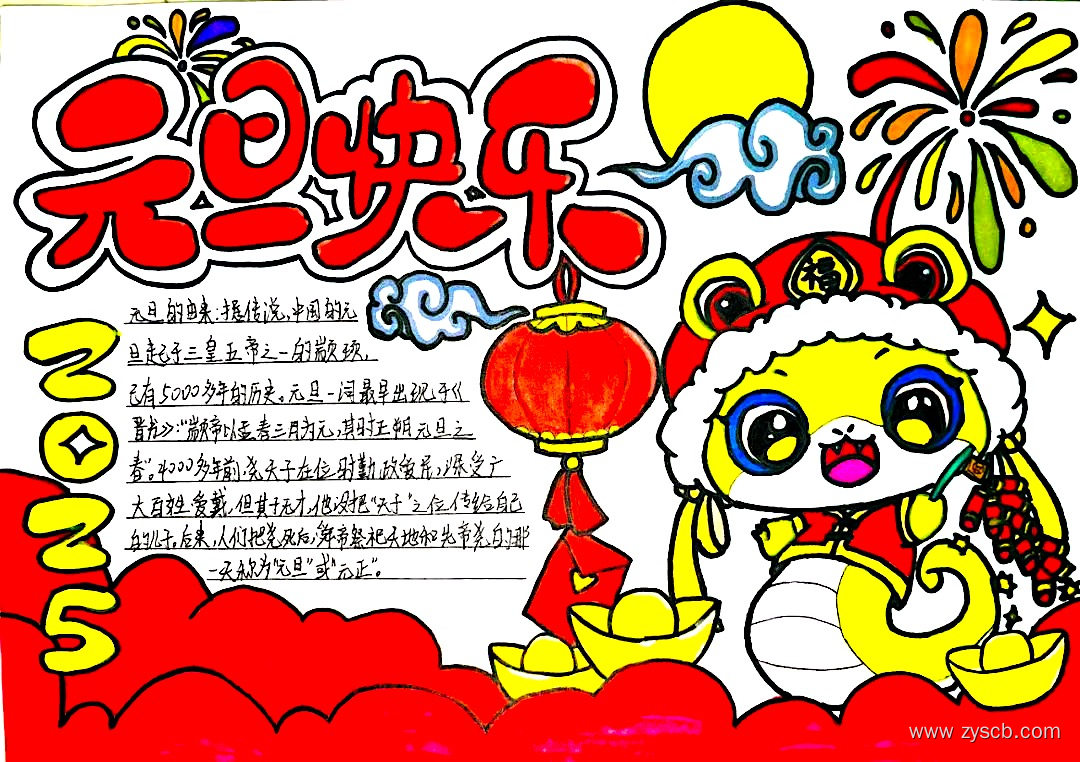 元旦快乐
福
2025
元旦的由来:据传说,中国的元
旦起于三皇五帝之一的颛顼,
已有5000多年的历史。元旦一词最早出现于《
晋书》:"颛帝以孟春三月为元,其时正朔元旦之
春"。4000多年前尧天子在位时勤政爱民,深受广
大百姓爱戴,但其子无才,他没把"天子"之位传给自己
的儿子。后来,人们把尧死后,舜帝祭祀天地和先帝尧的那
一天称为"元旦"或"元正"。
www.zyscb.com